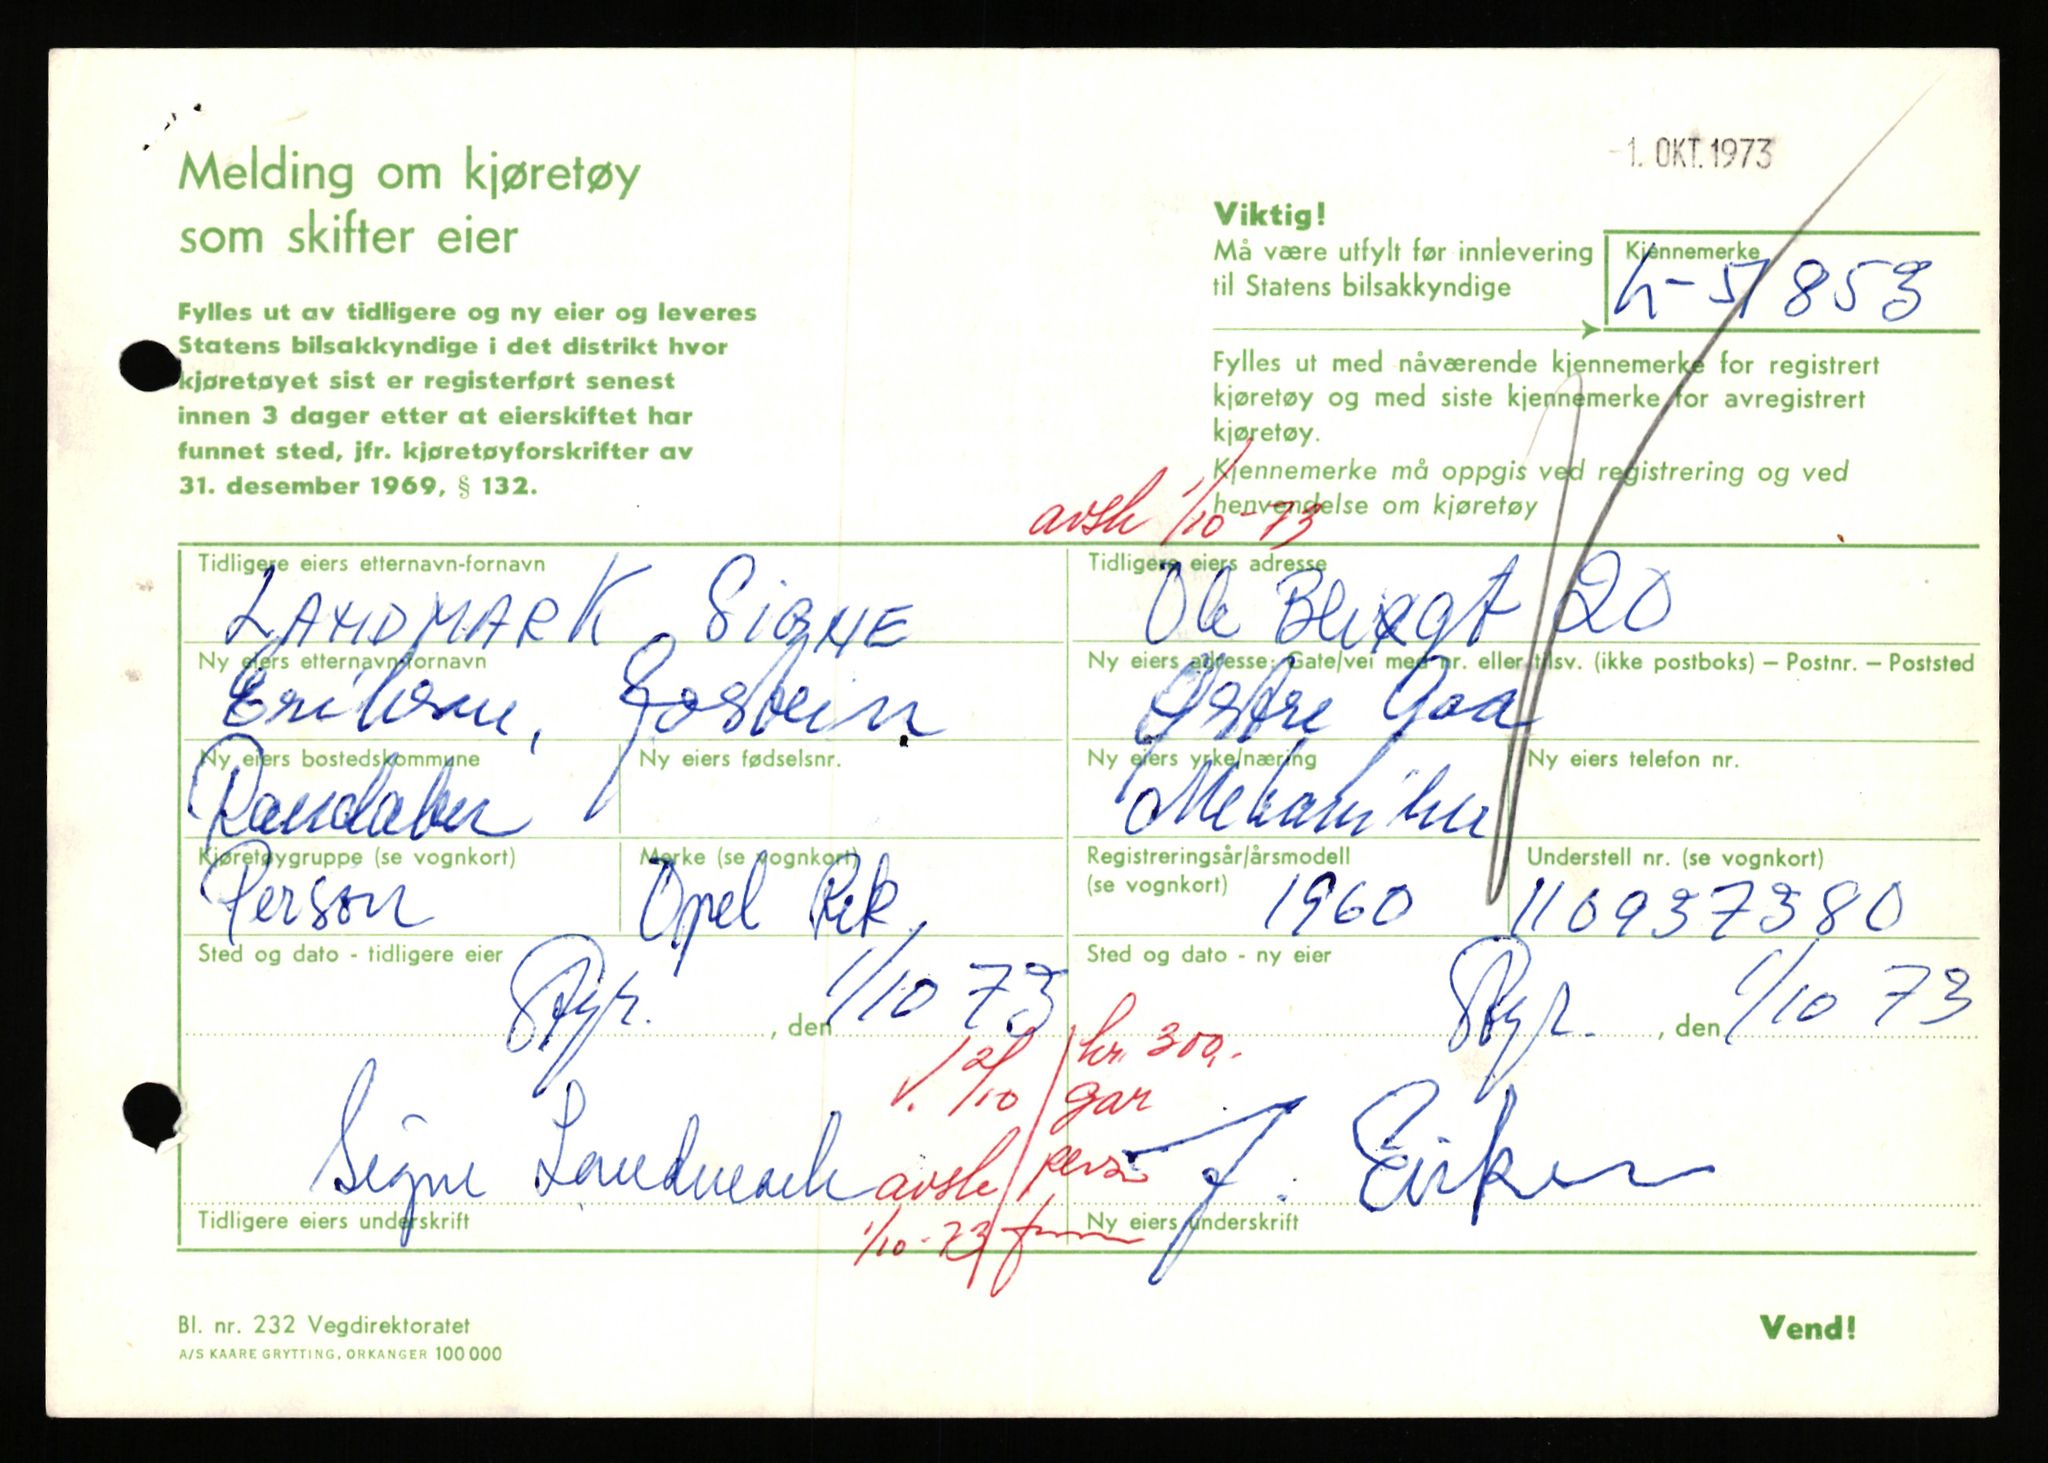 -1. OKT. 1973
Melding om kjøretøy
som skifter eier
Viktig!
Må være utfylt før innlevering
til Statens bilsakkyndige
Kjennemerke
L-51853
Fylles ut av tidligere og ny eier og leveres
Statens bilsakkyndige i det distrikt hvor
kjøretøyet sist er registerført senest
innen 3 dager etter at eierskiftet har
funnet sted, jfr. kjøretøyforskrifter av
31. desember 1969, § 132.
Fylles ut med nåværende kjennemerke for registrert
kjøretøy og med siste kjennemerke for avregistrert
kjøretøy.
Kjennemerke må oppgis ved registrering og ved
henvendelse om kjøretøy
avsk 1/10-73
Tidligere eiers etternavn-fornavn
LANDMARK SIGNE
Tidligere eiers adresse
Ole Blixgt 20
Ny eiers etternavn-fornavn
Eriksen, Jostein
Ny eiers adresse: Gate/vei med nr. eller tilsv. (ikke postboks) – Postnr. – Poststed
Østre Goa
Ny eiers bostedskommune
Randaberg
Ny eiers fødselsnr.
Ny eiers yrke/næring
Mekaniker
Ny eiers telefon nr.
Kjøretøygruppe (se vognkort)
Person
Merke (se vognkort)
Opel Rek.
Registreringsår/årsmodell
(se vognkort)
1960
Understell nr. (se vognkort)
110937380
Sted og dato - tidligere eier
, den 1/10 73
Sted og dato - ny eier
, den 1/10 73
V. 2/10
kr. 300,-
gar
pers
avsk
1/10-73
Signe Landmark
Tidligere eiers underskrift
J.
Ny eiers underskrift
Bl. nr. 232 Vegdirektoratet
A/S KAARE GRYTTING, ORKANGER 100 000
Vend!